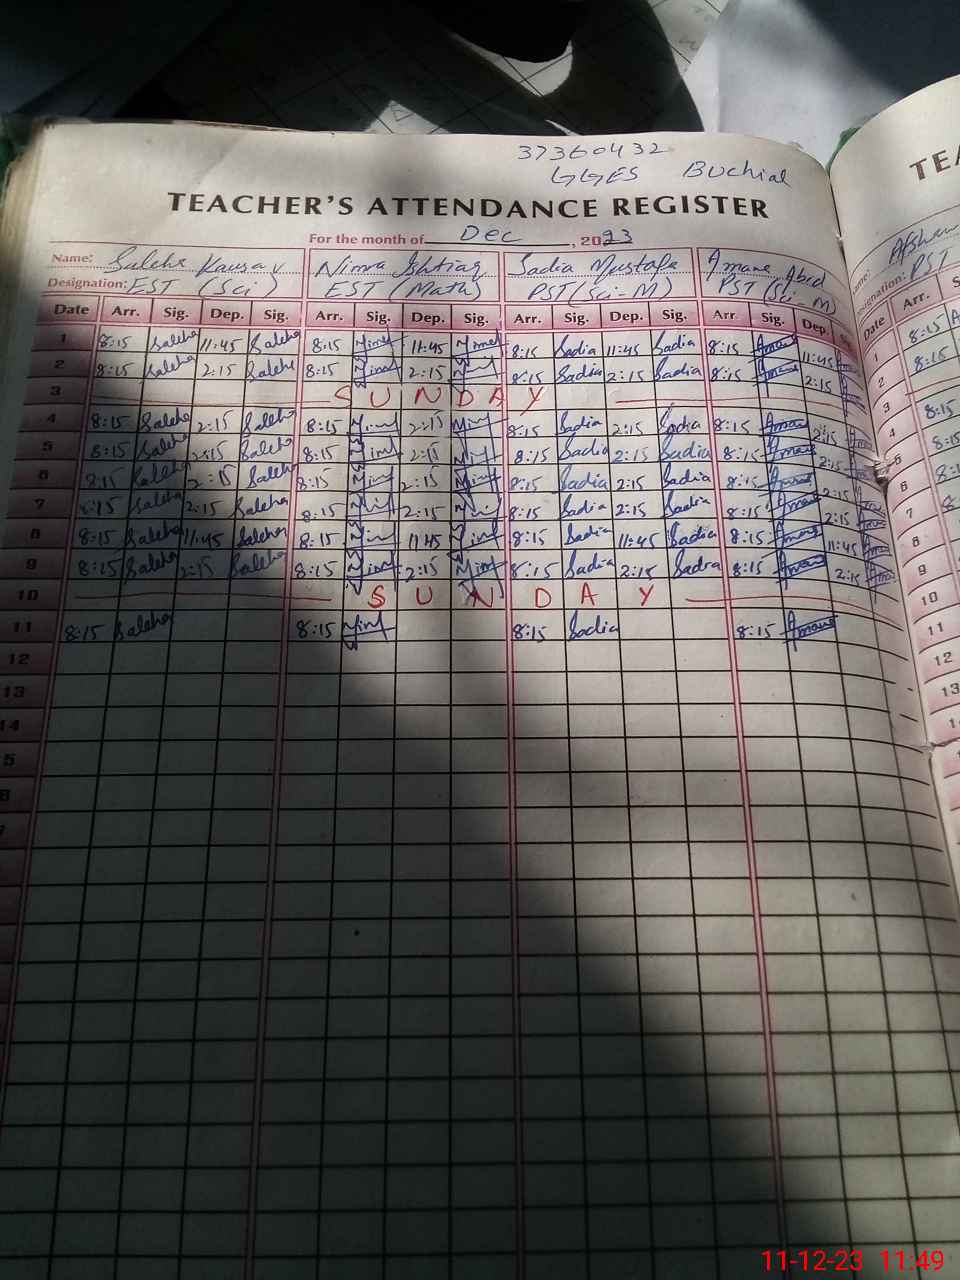 37360432
GGES Buchial
TEACHER'S ATTENDANCE REGISTER
TEA
For the month of Dec, 2023
Name: Saleha Kausar Nimra Ishtiaq Sadia Mustafa Amana Abid
Designation: EST (Sci) EST (Math) PST (Sci-M) PST (Sci-M) PST
Date Arr. Sig. Dep. Sig. Arr. Sig. Dep. Sig. Arr. Sig. Dep. Sig. Arr. Sig. Dep. Date Arr.
1 8:15 Saleha 11:45 Saleha 8:15 11:45 8:15 Sadia 11:45 Sadia 8:15 Amana 11:45 1 8:15
2 8:15 Saleha 2:15 Saleha 8:15 2:15 8:15 Sadia 2:15 Sadia 8:15 Amana 2:15 2 8:15
3 SUNDAY 3
4 8:15 Saleha 2:15 Saleha 8:15 2:15 8:15 Sadia 2:15 Sadia 8:15 Amana 2:15 4 8:15
5 8:15 Saleha 2:15 Saleha 8:15 2:15 8:15 Sadia 2:15 Sadia 8:15 Amana 2:15 5
6 8:15 Saleha 2:15 Saleha 8:15 2:15 8:15 Sadia 2:15 Sadia 8:15 Amana 2:15 6
7 8:15 Saleha 2:15 Saleha 8:15 2:15 8:15 Sadia 2:15 Sadia 8:15 Amana 2:15 7
8 8:15 Saleha 11:45 Saleha 8:15 11:45 8:15 Sadia 11:45 Sadia 8:15 Amana 11:45 8
9 8:15 Saleha 2:15 Saleha 8:15 2:15 8:15 Sadia 2:15 Sadia 8:15 Amana 2:15 9
10 SUNDAY 10
11 8:15 Saleha 8:15 8:15 Sadia 8:15 Amana 11
12 12
13 13
14
5
11-12-23 11:49